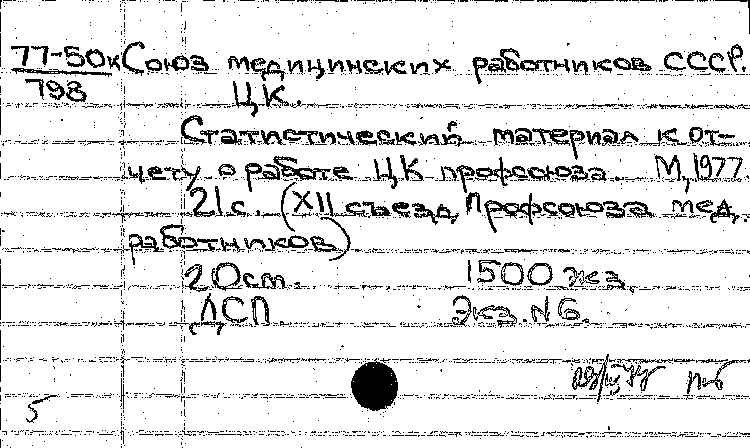 77-50к Союз медицинских работников СССР.
798 ЦК.
Статистический материал к от-
чету о работе ЦК профсоюза. М, 1977.
21 с. (XII съезд профсоюза мед.
работников)
20 см. 1500 экз.
ДСП. Экз. N 6.
5